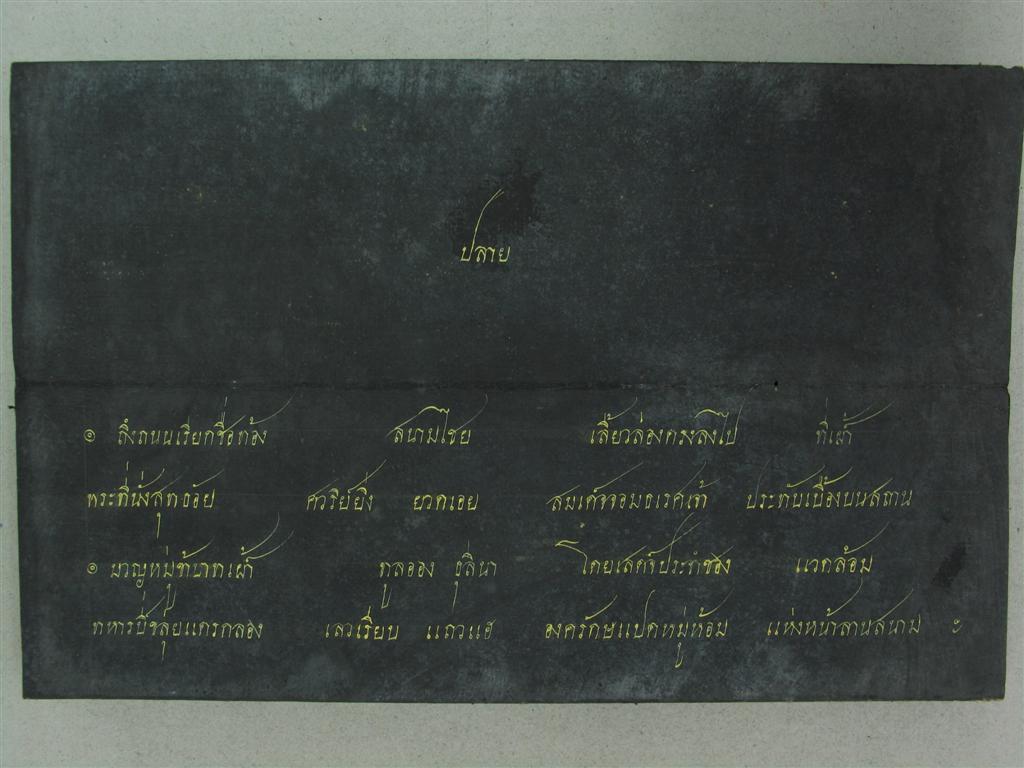 ปลาย
๏ ถึงถนนเรียกชื่อท้อง สนามไชย เลี้ยวล่องตรงลงไป ที่เฝ้า
พระที่นั่งสุทธอัย ศวริย์ยิ่ง ยวดเอย สมเด็จจอมนเรศเจ้า ประทับเบื้องบนสถาน
๏ มวญหมู่ข้าบาทเฝ้า ทูลออง ธุลีนา โดยเสด็จประทำซอง แวดล้อม
ทหารปี่ขลุ่ยแตรกลอง เลวเรียบ แถวแฮ องครักษแปดหมู่ห้อม แห่งหน้าลานสนาม ๚